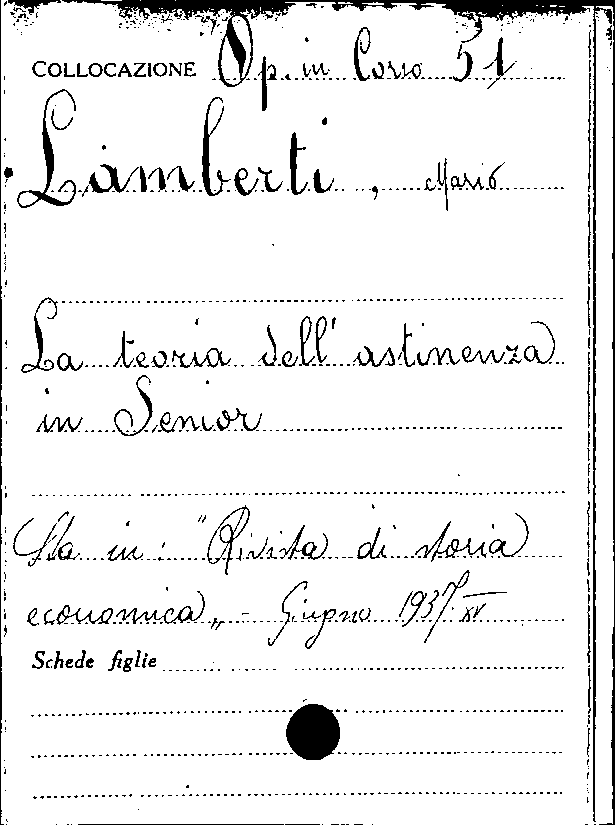 COLLOCAZIONE Op. in Corso 51
Lamberti, Mario
La teoria dell' astinenza
in Senior
Sta in: "Rivista di storia
economica„ - Giugno 1937. XV
Schede figlie